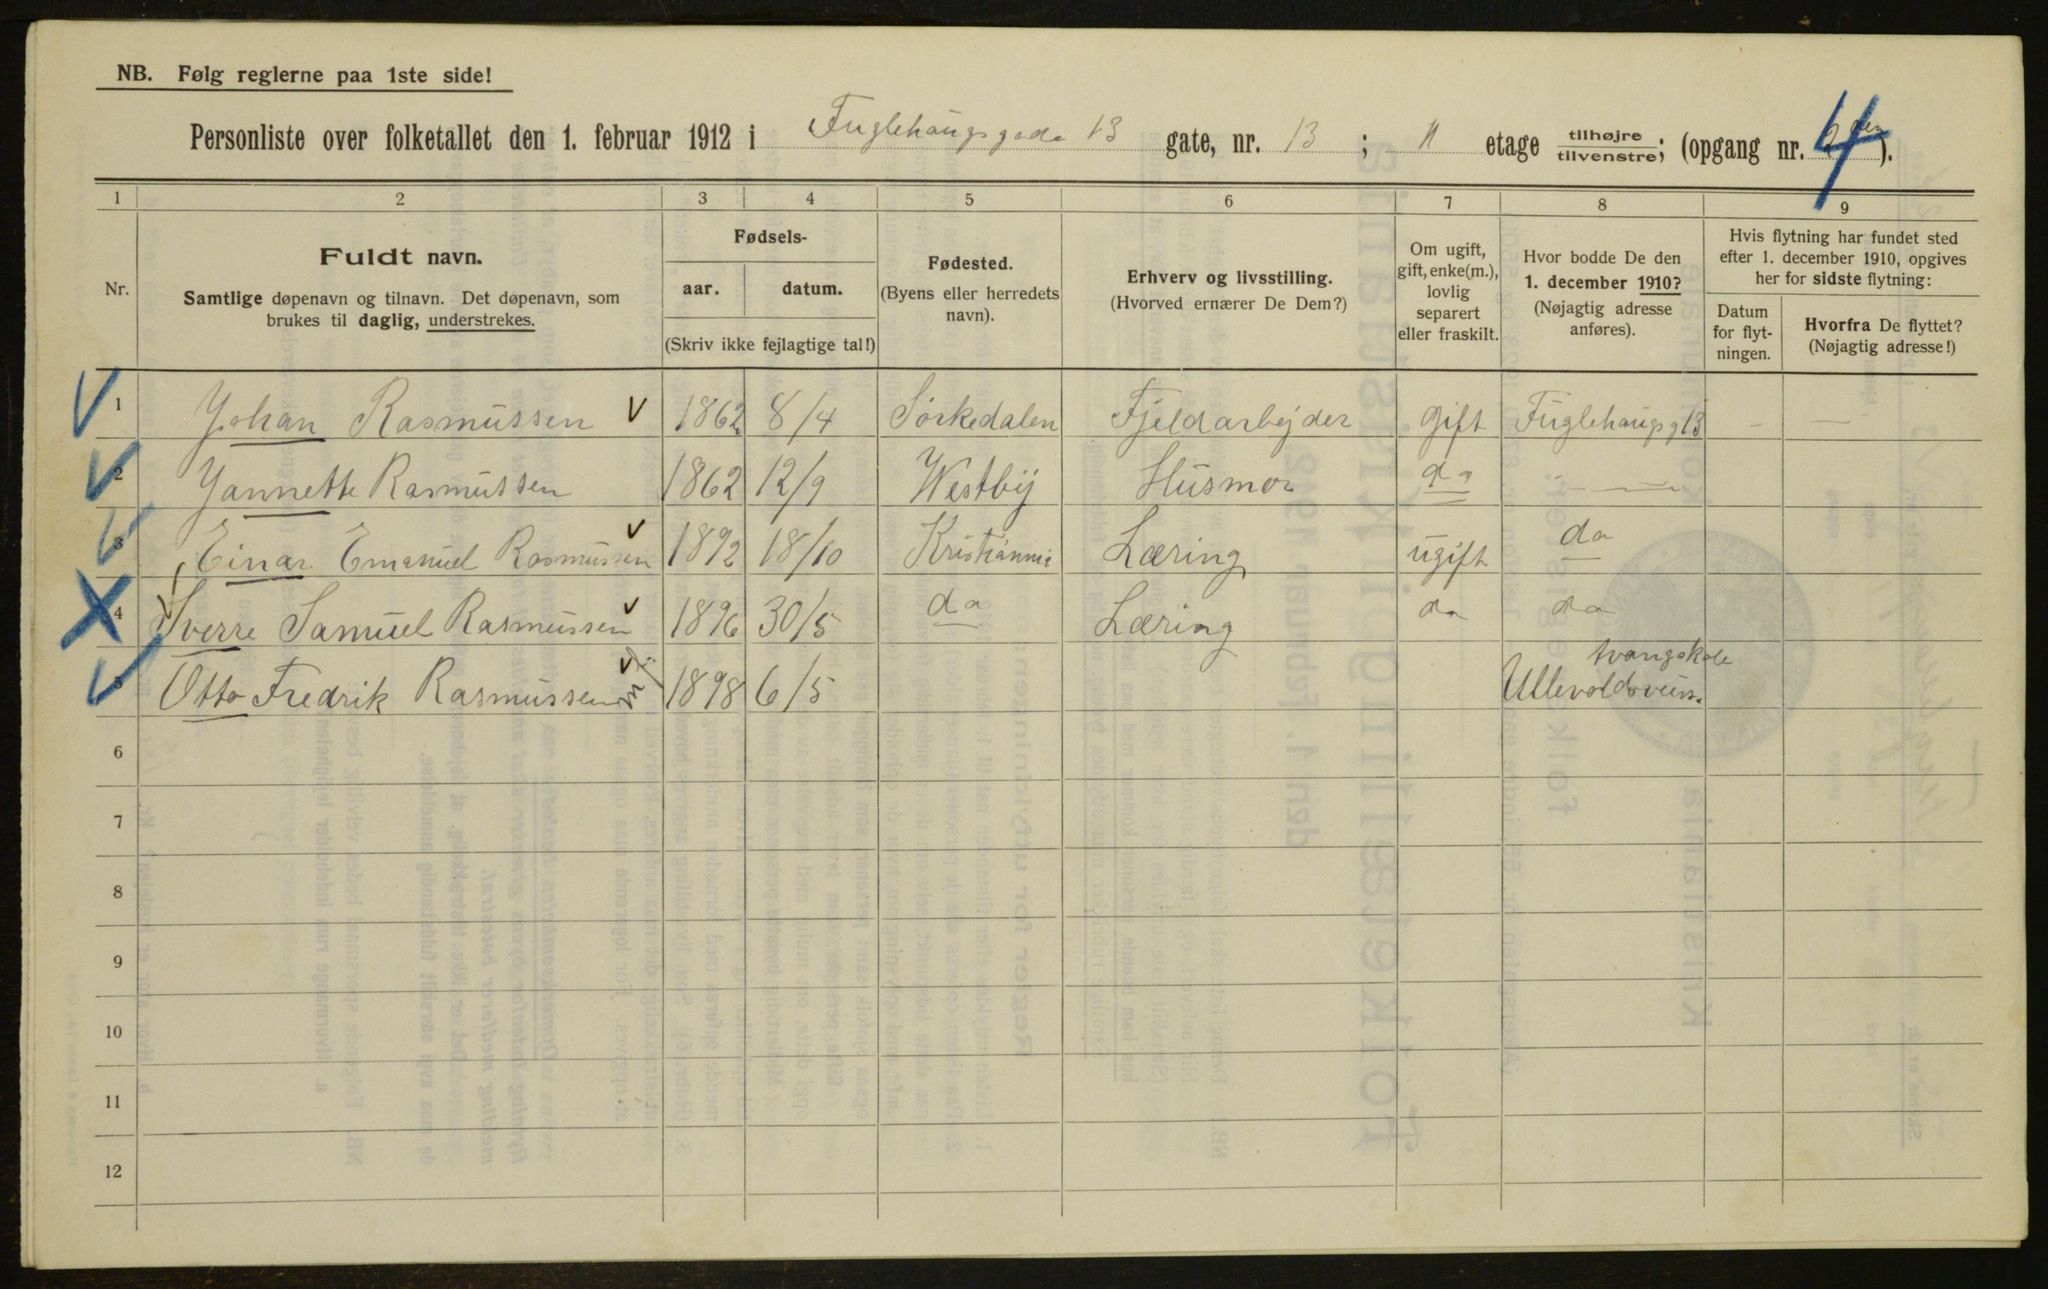 NB. Følg reglerne paa 1ste side!
Personliste over folketallet den 1. februar 1912 i Fuglehaugsgade 13 gate, nr. 13 ; II etage tilhøjre tilvenstre; (opgang nr. 4).
1 2 3 4 5 6 7 8 9
Nr.
Fuldt navn.
Samtlige døpenavn og tilnavn. Det døpenavn, som
brukes til daglig, understrekes.
Fødsels-
aar. datum.
(Skriv ikke fejlagtige tal!)
Fødested.
(Byens eller herredets
navn).
Erhverv og livsstilling.
(Hvorved ernærer De Dem?)
Om ugift,
gift, enke(m.),
lovlig
separert
eller fraskilt.
Hvor bodde De den
1. december 1910?
(Nøjagtig adresse
anføres).
Hvis flytning har fundet sted
efter 1. december 1910, opgives
her for sidste flytning:
Datum
for flyt-
ningen.
Hvorfra De flyttet?
(Nøjagtig adresse!)
1 Johan Rasmussen 1862 8/4 Sørkedalen Fjeldarbejder gift Fuglehaugsg 13 – —
2 Jannette Rasmussen 1862 12/9 Westby Husmor do — —
3 Einar Emanuel Rasmussen 1892 18/10 Kristiannia Læring ugift do
4 Sverre Samuel Rasmussen 1896 30/5 do Læring do do
5 Otto Fredrik Rasmussen 1898 6/5 tvangskole
Ullevoldsvein.
6
7
8
9
10
11
12